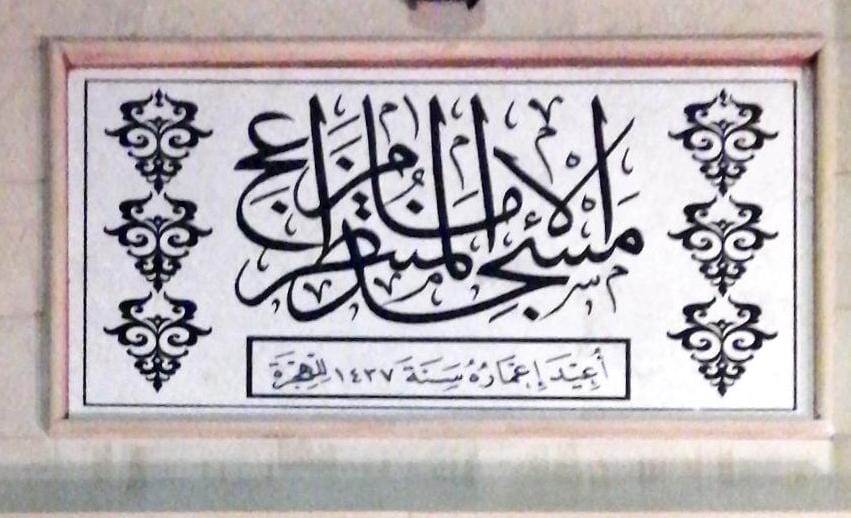 مسجد الإمام المنتظر عج
أُعِيْدَ إِعْمَارُهُ سَنَةَ ١٤٣٧ لِلْهِجْرَةِ